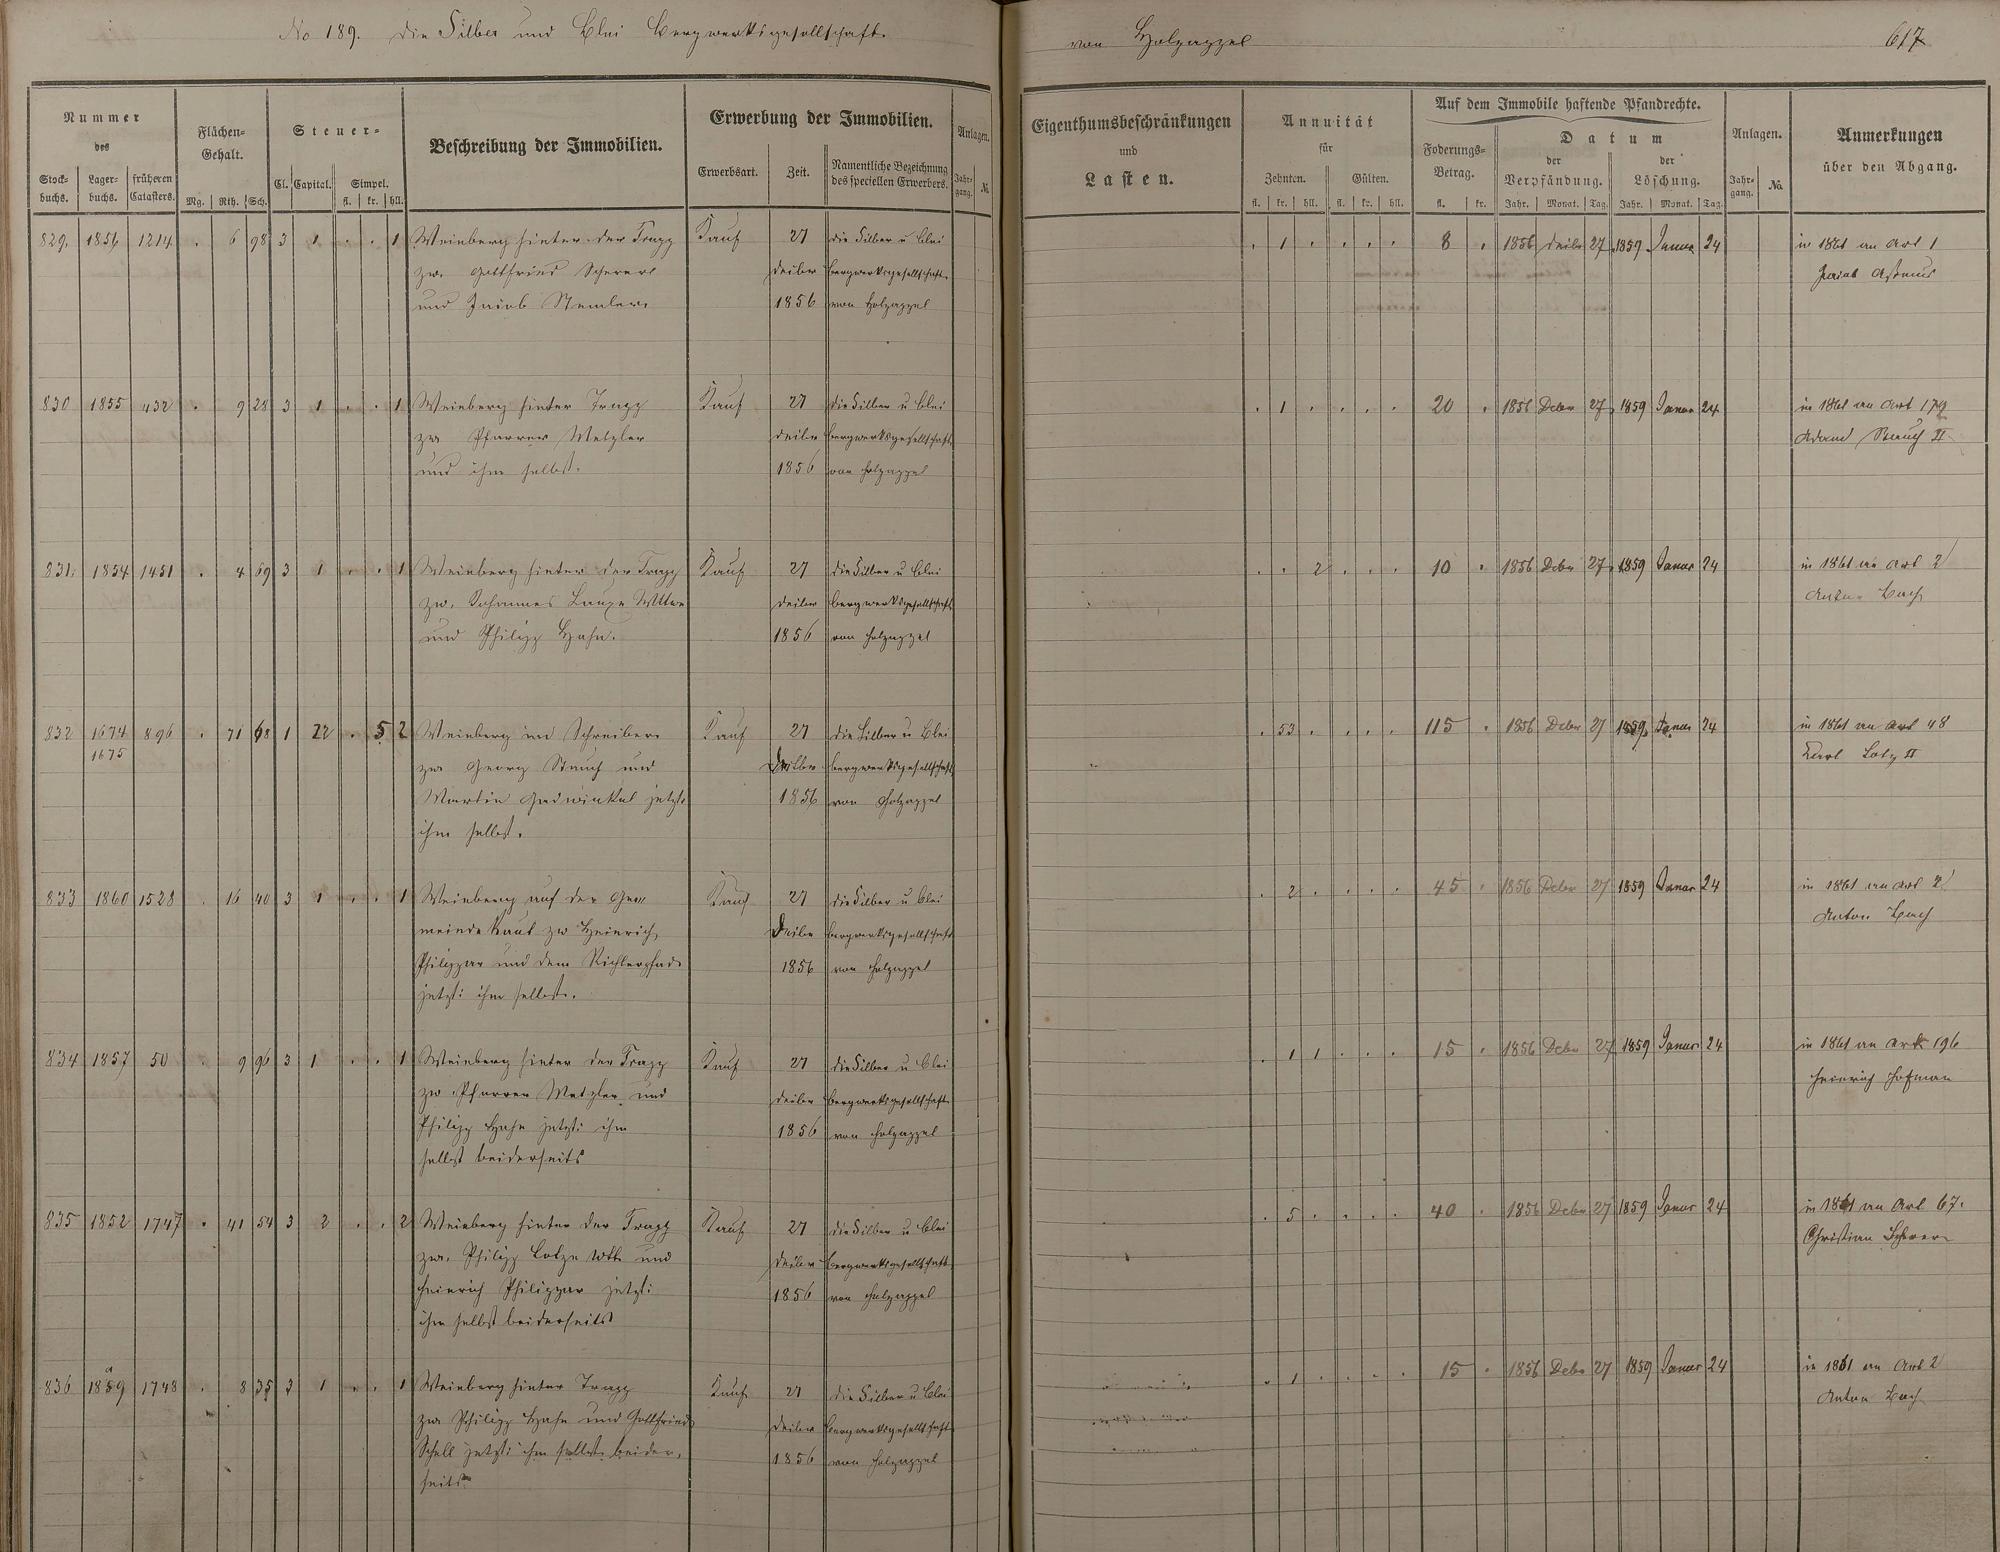 No 189. Die Silber und Blei Bergwerksgesellschaft
von Holzappel
617
Nummer
des
Stock-buchs.
Lager-buchs.
früheren Catasters.
Flächen-Gehalt.
Mg. Rth. Sch.
Steuer-
Cl. Capital. Simpel.
fl. kr. hll.
Beschreibung der Immobilien.
Erwerbung der Immobilien.
Erwerbsart. Zeit. Namentliche Bezeichnung des speciellen Erwerbers.
Anlagen.
Jahr-gang. №
Eigenthumsbeschränkungen
und
Lasten.
Annuität
für
Zehnten. Gülten.
fl. kr. hll. fl. kr. hll.
Auf dem Immobile haftende Pfandrechte.
Foderungs-Betrag.
fl. kr.
Datum
der Verpfändung. der Löschung.
Jahr. Monat. Tag. Jahr. Monat. Tag.
Anlagen.
Jahr-gang. No.
Anmerkungen
über den Abgang.
829. 1856 1214 . 6 98 3 1 . . 1 Weinberg hinter der Trapp Kauf 27 die Silber u Blei . 1 . . . . 8 . 1856 27 1859 Januar 24 in 1861 an Art 1
zw. Gottfried Scherer Bergwerksgesellschaft Jacob
und Jacob Stemler 1856 von Holzappel
830 1855 432 . 9 28 3 1 . . 1 Weinberg hinter Trapp Kauf 27 die Silber u Blei . 1 . . . . 20 . 1856 Decbr 27 1859 Januar 24 in 1861 an Art 179
zw Pfarrer Metzler Bergwerksgesellschaft Adam Bauch II
und ihm selbst. 1856 von Holzappel
831. 1854 1451 . 4 69 3 1 . . 1 Weinberg hinter der Trapp Kauf 27 die Silber u Blei . . 2 . . . 10 . 1856 Decbr 27 1859 Januar 24 in 1861 an Art 2
zw. Johannes Wittwe Bergwerksgesellschaft Anton Bach
und Philipp Hahn. 1856 von Holzappel
832 1674 896 . 71 68 1 22 . 5 2 Weinberg im Schreiber Kauf 27 die Silber u Blei . 53 . . . . 115 . 1856 Decbr 27 1859 Januar 24 in 1861 an Art 48
1675 zw Georg Stauch und Bergwerksgesellschaft Karl Lotz II
Martin jetzt 1856 von Holzappel
ihm selbst.
833 1860 1528 . 16 40 3 1 . . 1 Weinberg auf der Ge- Kauf 27 die Silber u Blei . 2 . . . . 45 . 1856 Decbr 27 1859 Januar 24 in 1861 an Art 2
meinde zw Heinrich Bergwerksgesellschaft Anton Bach
Philippar und dem 1856 von Holzappel
jetzt ihm selbst.
834 1857 50 . 9 96 3 1 . . 1 Weinberg hinter der Trapp Kauf 27 die Silber u Blei . 1 1 . . . 15 . 1856 Decbr 27 1859 Januar 24 in 1861 an Art 196
zw Pfarrer Metzler und Bergwerksgesellschaft Heinrich Hofman
Philipp Hahn jetzt ihm 1856 von Holzappel
selbst beiderseits
835 1852 1747 . 41 54 3 2 . . 2 Weinberg hinter der Trapp Kauf 27 die Silber u Blei . 5 . . . . 40 . 1856 Decbr 27 1859 Januar 24 in 1861 an Art 67.
zw. Philipp Lotze Wtb und Bergwerksgesellschaft Christian Scherer
Heinrich Philippar jetzt 1856 von Holzappel
ihm selbst beiderseits
836 1859 1748 . 8 35 3 1 . . 1 Weinberg hinter Trapp Kauf 27 die Silber u Blei . 1 . . . . 15 . 1856 Decbr 27 1859 Januar 24 in 1861 an Art 2
zw Philipp Hahn und Gottfried Bergwerksgesellschaft Anton Bach
Schell jetzt ihm selbst beider- 1856 von Holzappel
seits